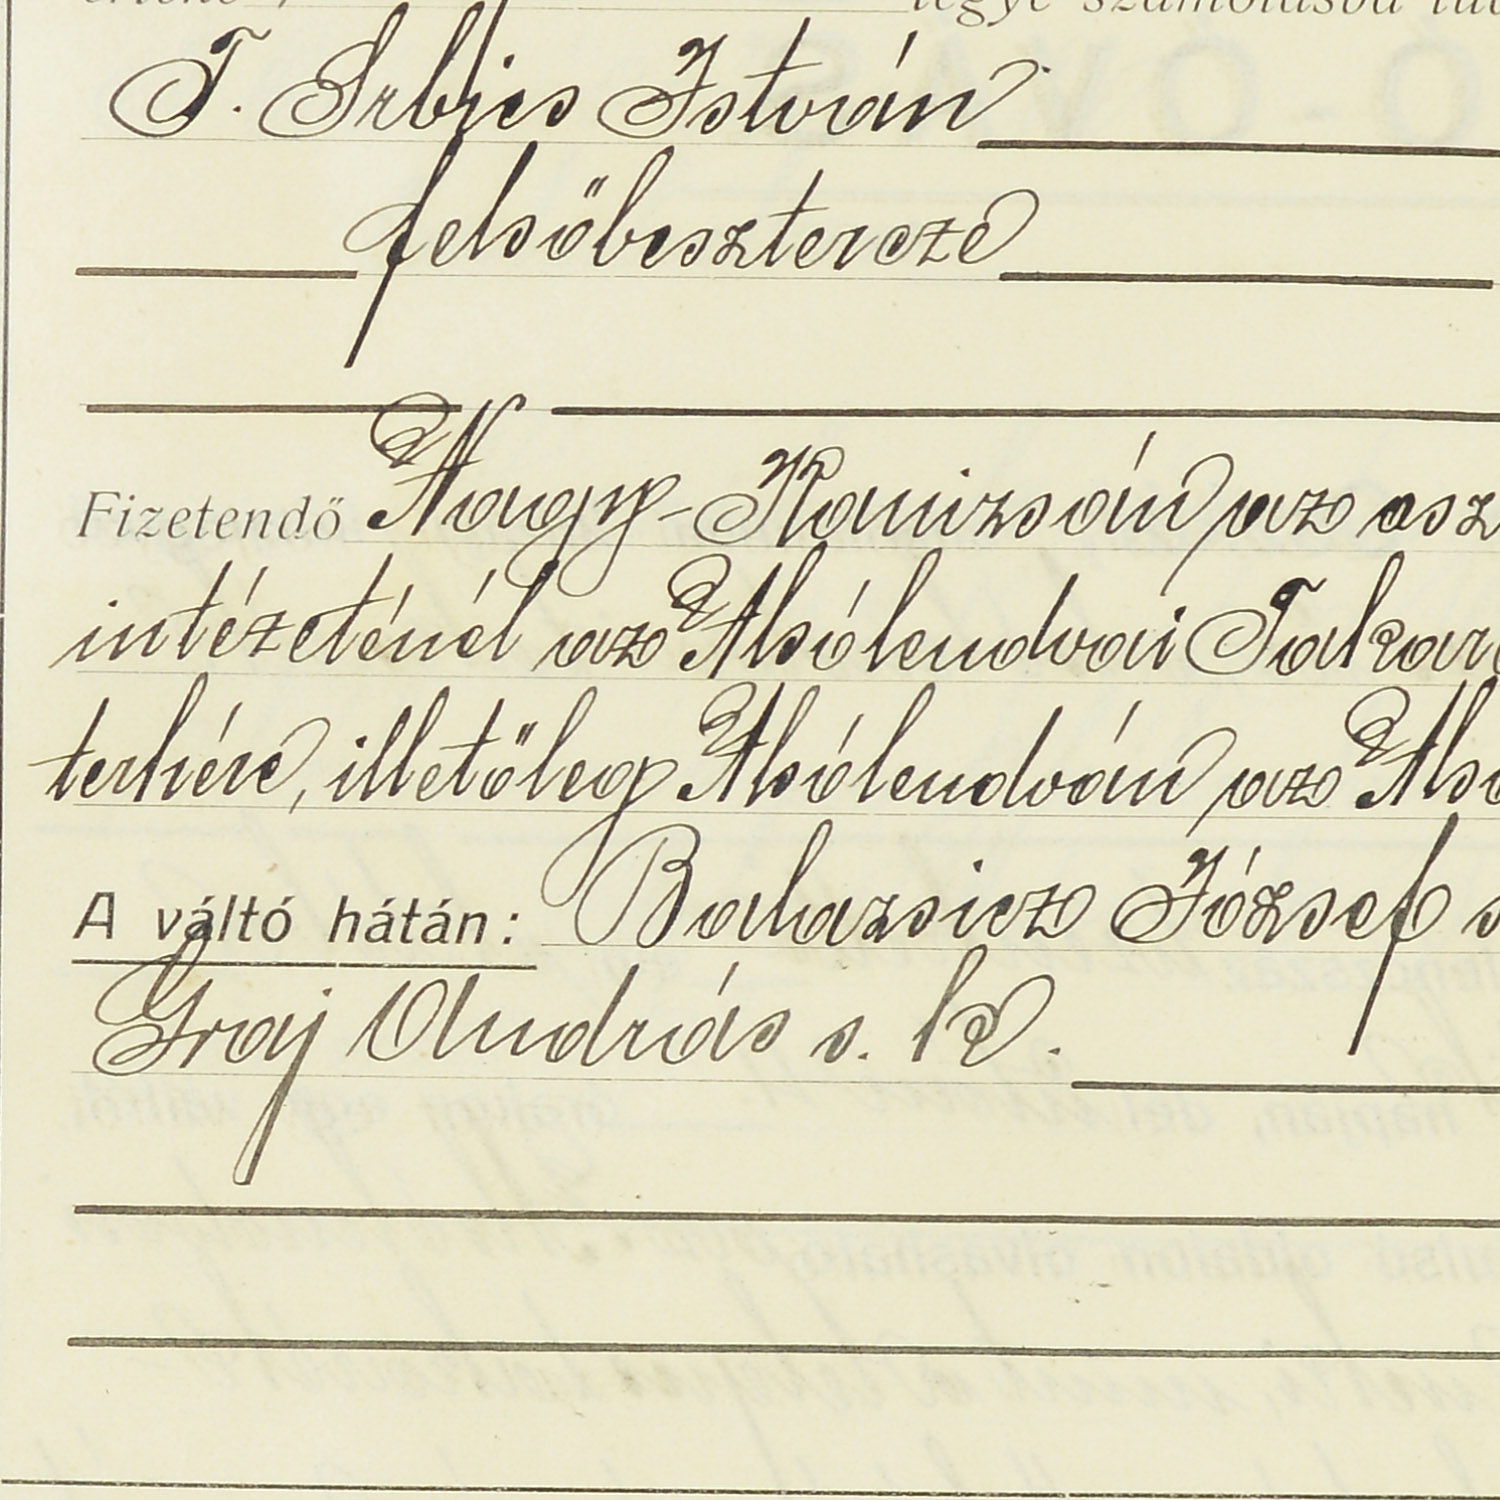 tegye számolásba
T. Srbics István
felsőbesztercze
Fizetendő Nagy-Kanizsán az osz
intézeténél az Alsólendvai Takar
terhére, illetőleg Alsólendván az Also
A váltó hátán: Balazsicz József s
Graj András s. k.